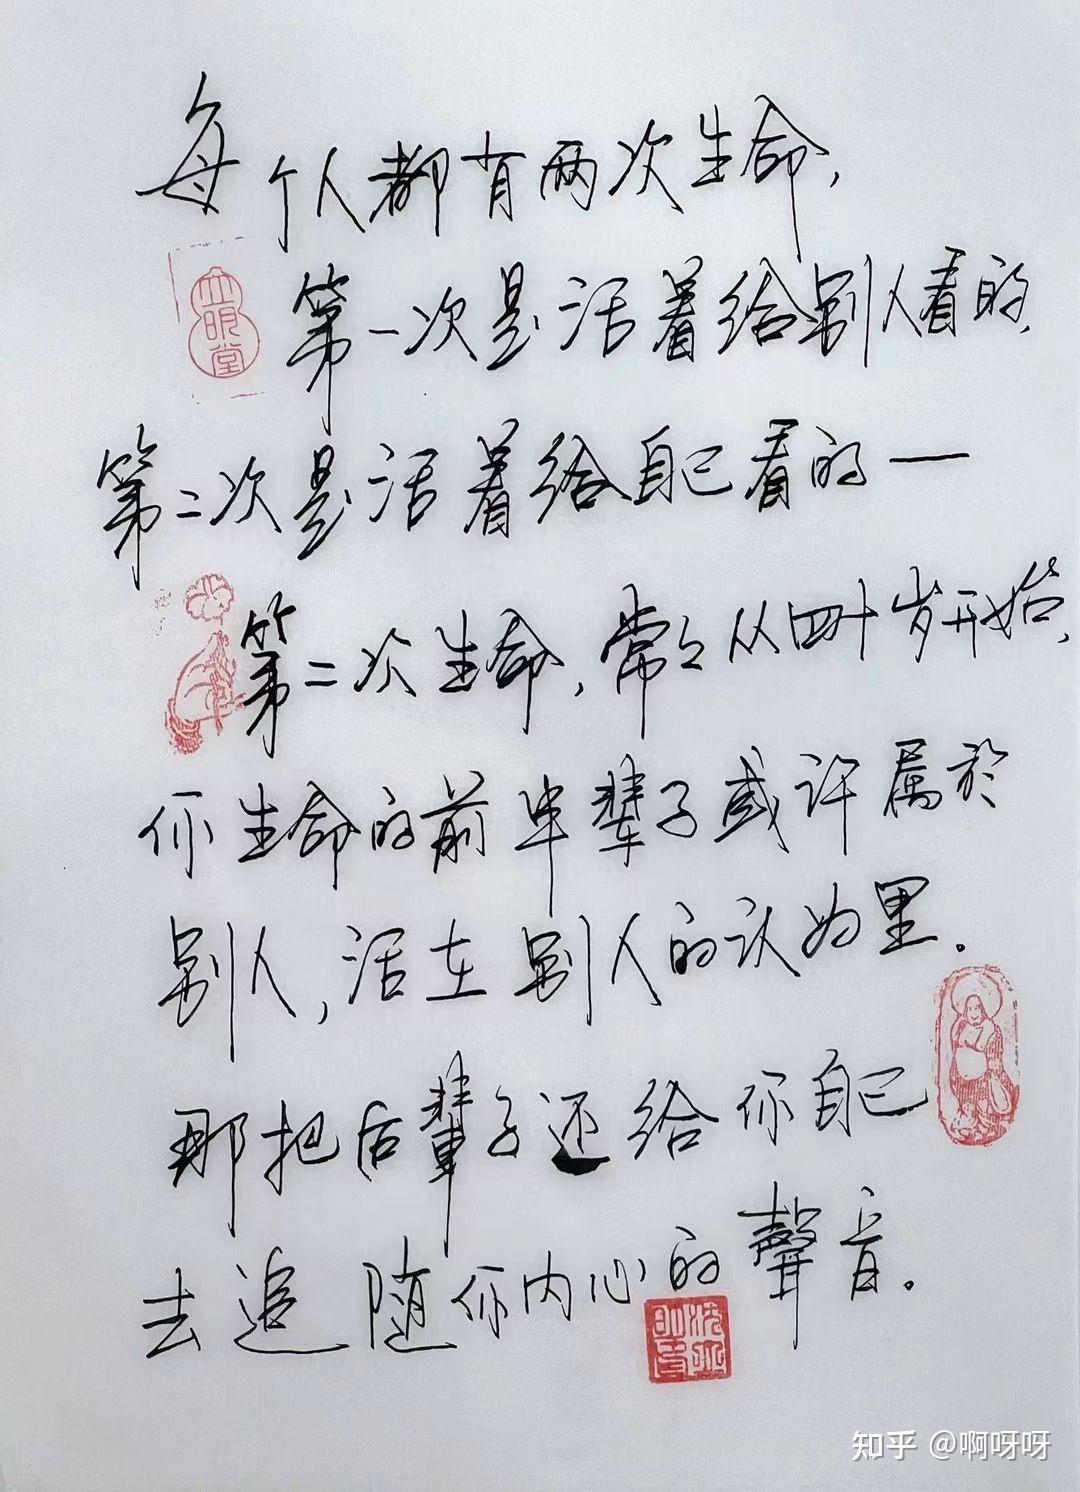 每个人都有两次生命，
第一次是活着给别人看的，
第二次是活着给自己看的——
第二次生命，常々从四十岁开始，
你生命的前半辈子或许属於
别人，活在别人的认为里。
那把后辈子还给你自己
去追随你内心的聲音。
立明堂
知乎 @啊呀呀